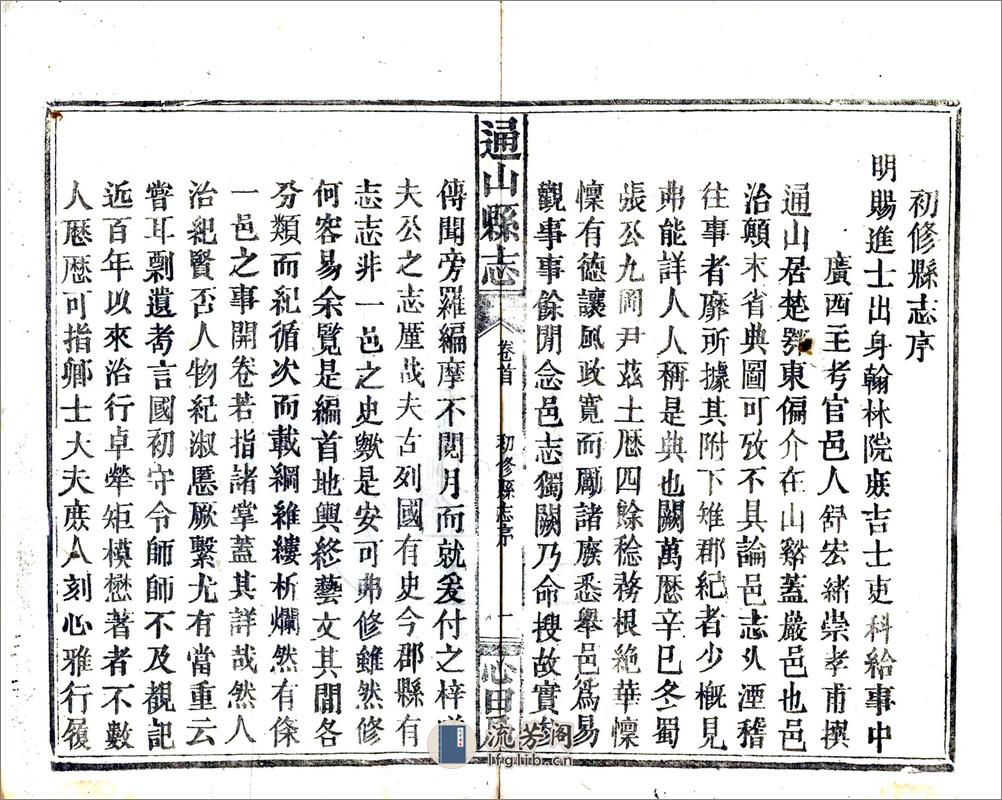 初修縣志序
明賜進士出身翰林院庻吉士吏科給事中
廣西主考官邑人舒宏緒崇孝甫撰
通山居楚鄂東偏介在山谿蓋嚴邑也邑
治顛末省典圖可攷不具論邑志久湮稽
往事者靡所據其附下雉郡紀者少槪見
弗能詳人人稱是典也闕萬歷辛巳冬蜀
張公九岡尹茲土歷四餘稔務根絶華懍
懔有德讓風政寛而勵諸廢悉舉邑爲易
觀事事餘閒念邑志獨闕乃命搜故實
通山縣志
卷首
初修縣志序
一
心田局
傳聞旁羅編摩不閱月而就爰付之梓
夫公之志厪哉夫古列國有史今郡縣有
志志非一邑之史歟是安可弗修雖然修
何容易余覽是編首地輿終藝文其間各
分類而紀循次而載綱維縷析爛然有條
一邑之事開卷若指諸掌蓋其詳哉然人
治紀賢否人物紀淑慝厥繫尤有當重云
嘗耳剽遺耈言國初守令師師不及觀記
近百年以來治行卓犖矩模懋著者不數
人歷歷可指鄉士大夫庻人刻心雅行履
流芳閣
lfglib.cn